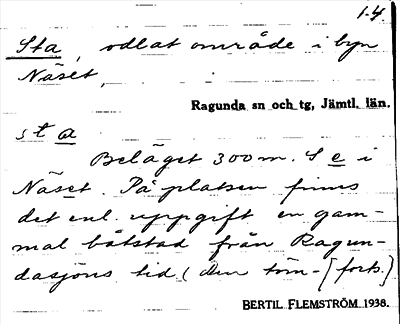 1-4.
Sta, odlat område i byn
Näset,
Ragunda sn och tg, Jämtl. län.
sta
Beläget 300 m. S e i
Näset. På platsen finns
det enl. uppgift en gam-
mal båtstad från Ragun-
dasjöns tid (den töm- [forts.]
BERTIL FLEMSTRÖM 1938.